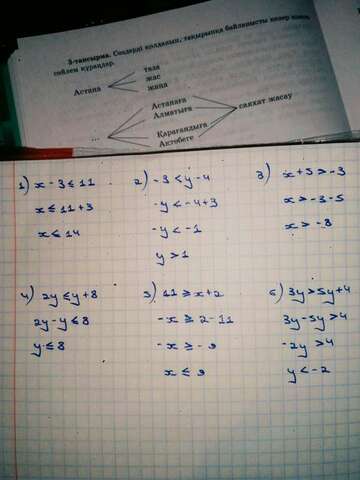 3-тапсырма. Сөздерді қолданып, тақырыпқа байланысты
сөйлем құраңдар.
Астана
таза
жас
жаңа
...
Астанаға
Алматыға
Қарағандыға
Ақтөбеге
саяхат жасау
1) x - 3 ≤ 11
x ≤ 11 + 3
x ≤ 14
2) -3 < y - 4
-y < -4 + 3
-y < -1
y > 1
3) x + 5 > -3
x > -3 - 5
x > -8
4) 2y ≤ y + 8
2y - y ≤ 8
y ≤ 8
5) 11 ≥ x + 2
-x ≥ 2 - 11
-x ≥ -9
x ≤ 9
6) 3y > 5y + 4
3y - 5y > 4
-2y > 4
y < -2